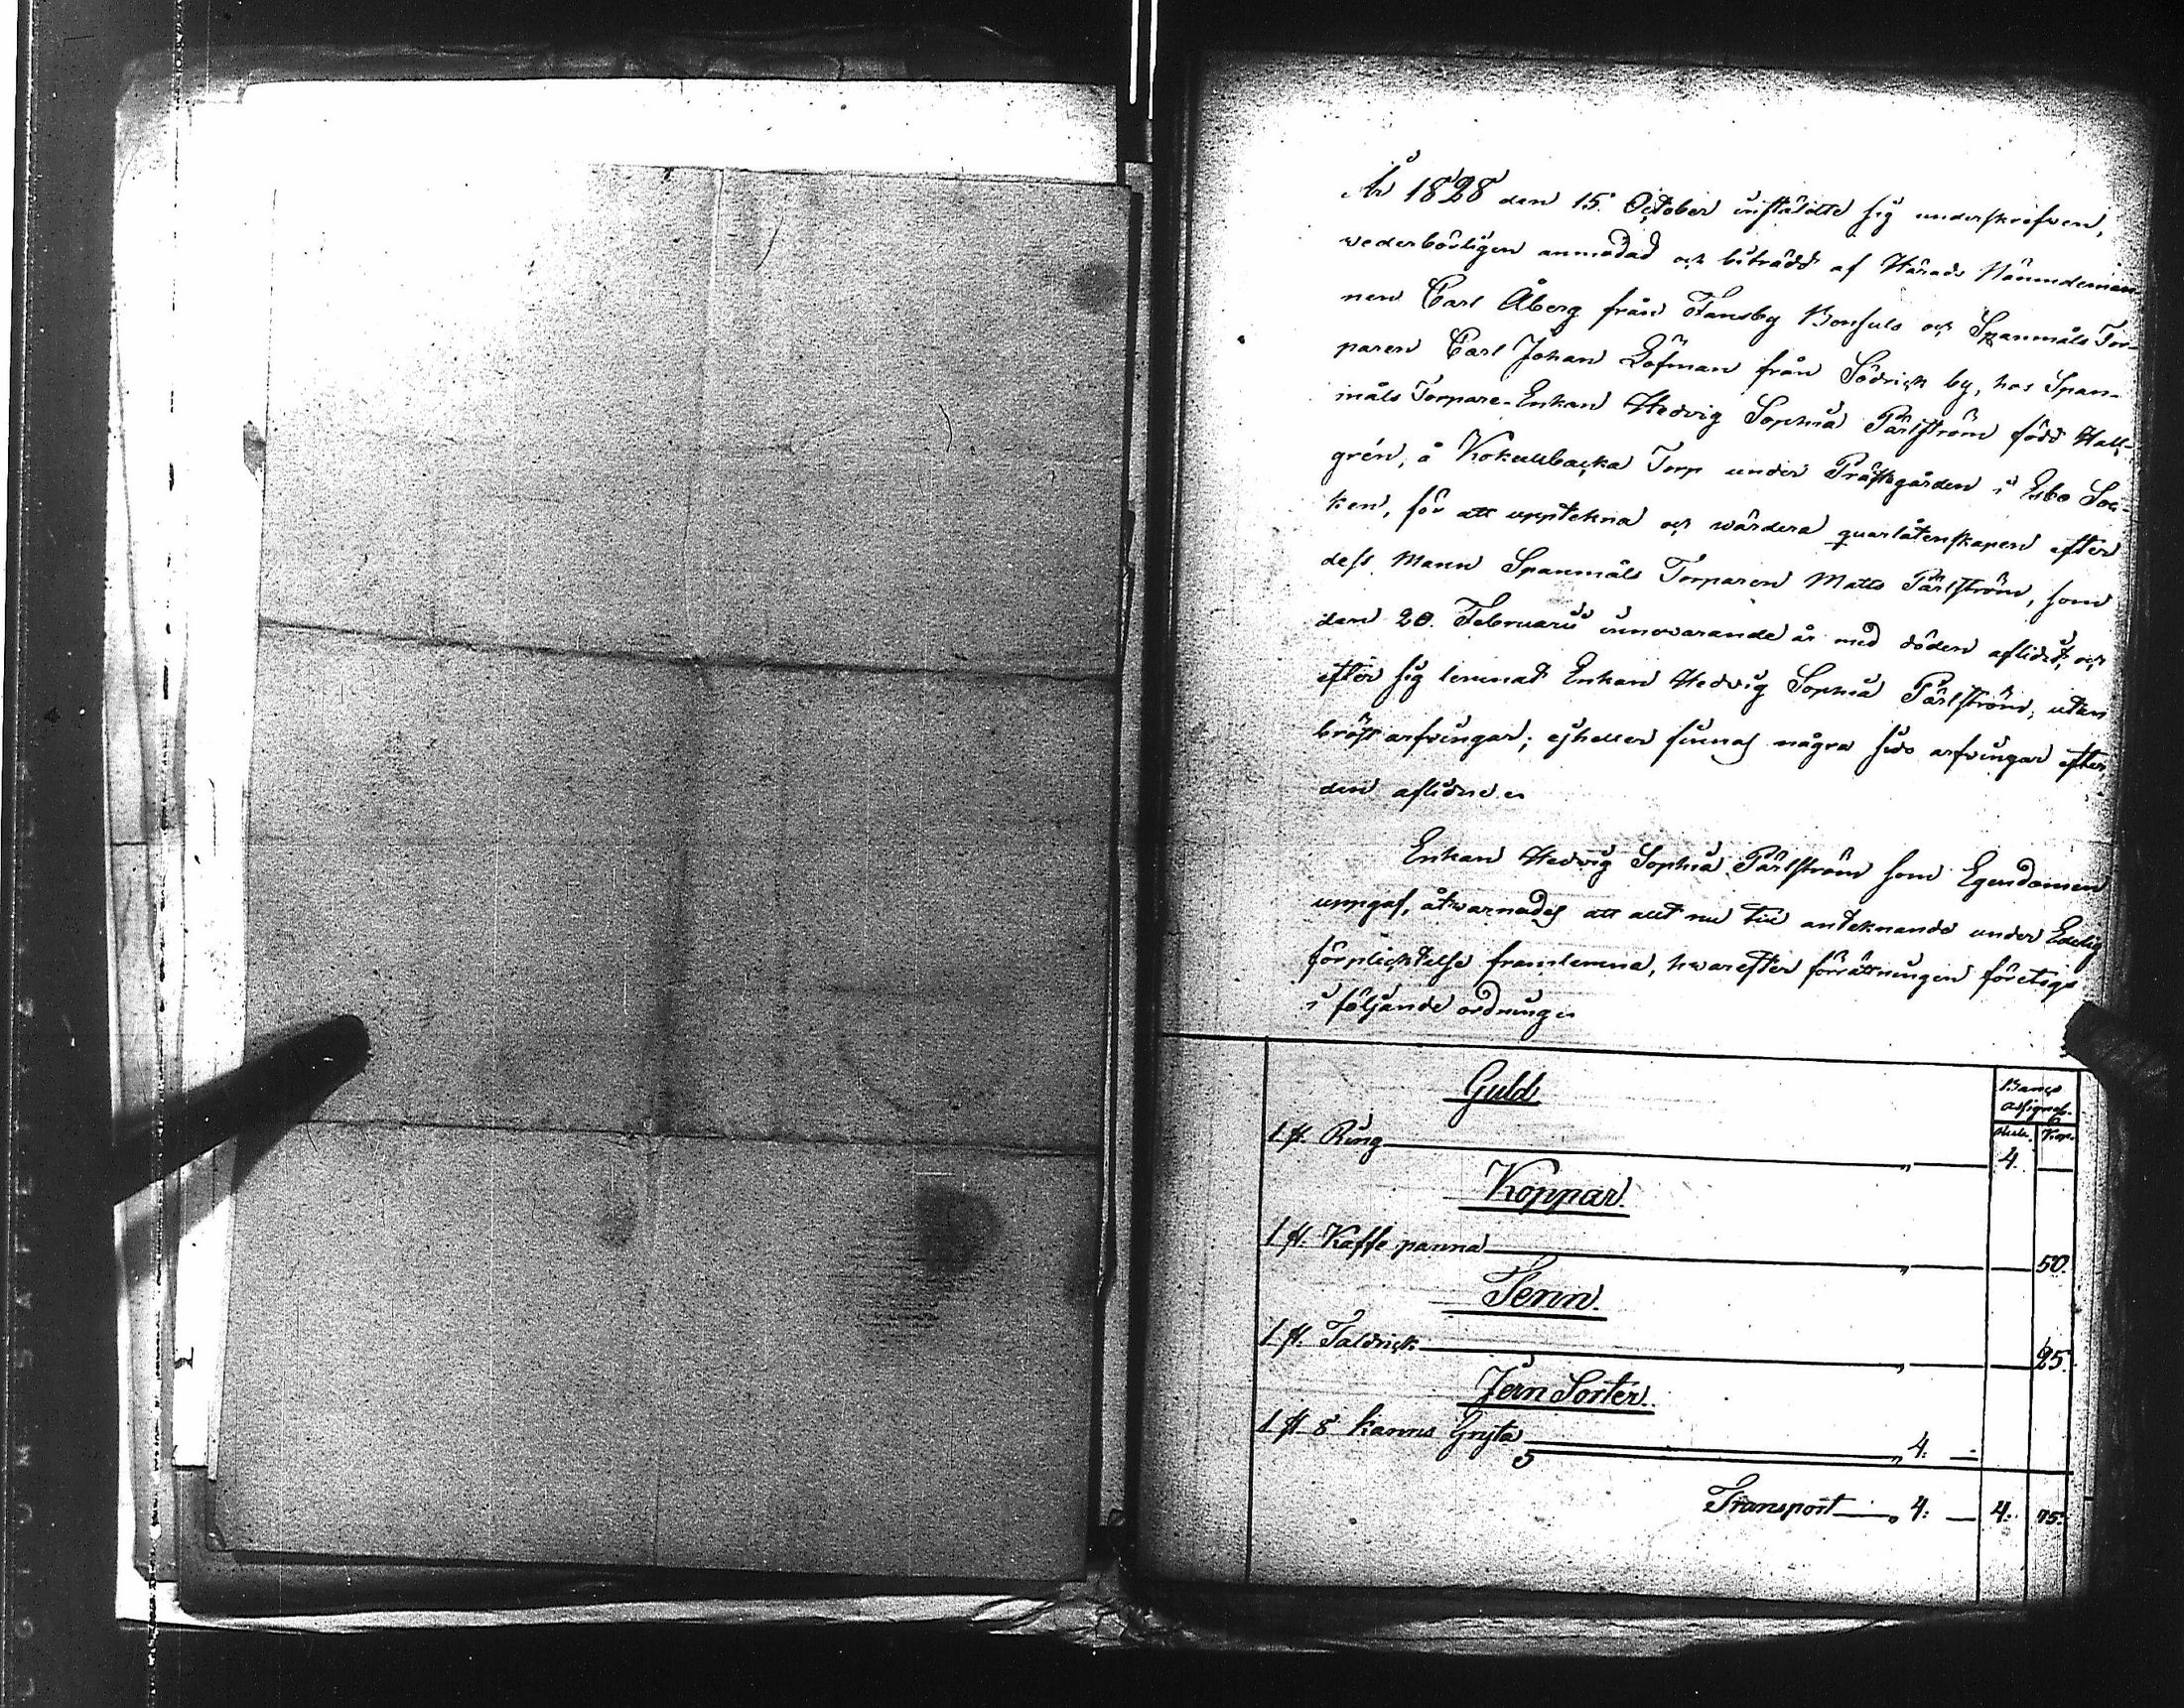 År 1828 den 15. October inställdte sig underskrefven,
wederbörligen anmodad och biträdd af Härads Nämndeman-
nen Carl Åberg från Fansby Bonfuls och Spanmåls Tor-
paren Carl Johan Löfman från Södrick by, hos Span-
måls Torpare-Enkan Hedvig Sophia Pärlström född Hall-
grén, å Kokullbacka Torp under Prästgården i Esbo Soc-
ken, för att upptekna och wärdera quarlåtenskapen efter
dess Mann Spanmåls Torparen Matts Pärlström, som
den 20. Februarii innevarande år med döden aflidit, och
efter sig lemnat Enkan Hedvig Sophia Pärlström, utan
bröst arfvingar; ejheller finnas några sido arfvingar efter
den aflidne.
Enkan Hedvig Sophia Pärlström som Egendomen
uppgaf, åtwarnades att allt nu till antecknande under Edelig
förplicktelse framlemna, hwarefter förrättningen företogs
i följande ordning
Banco
Assignat.
Guld
Rub. Kop.
1 st. Ring " 4. —
Koppar.
1 st. Kaffe panna " 50.
Tenn.
1 st. Taldrick " 25.
Jern Sorter.
1 st. 8 kanns Gryta " 4. —
Transport " 4. — 4. 75.